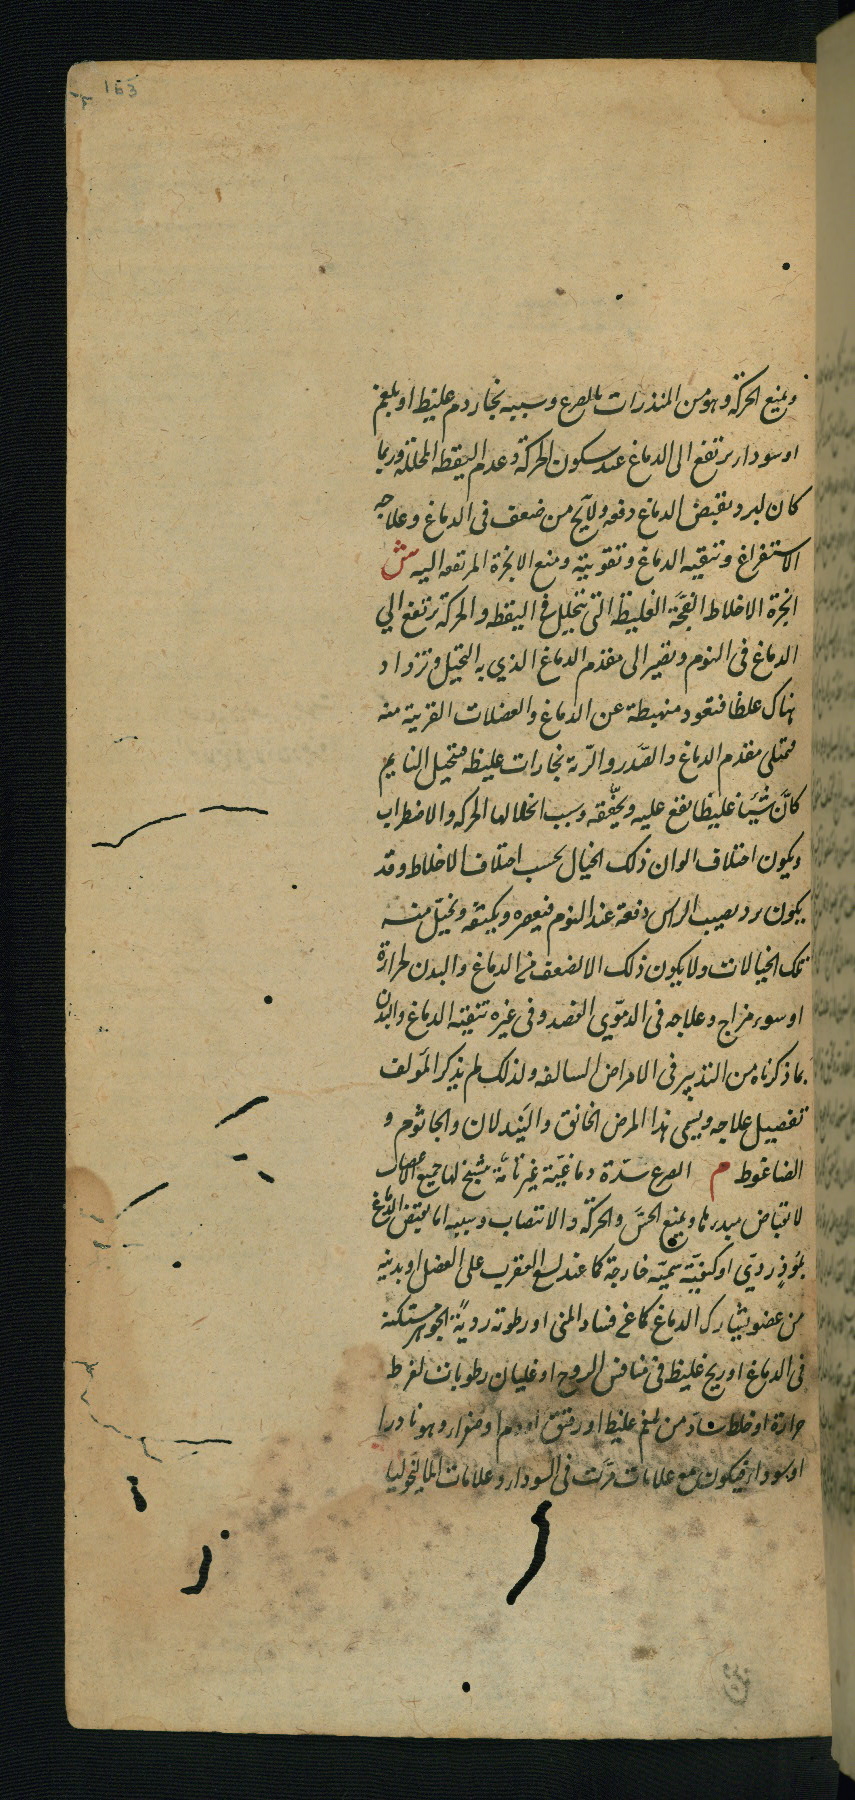 163
ويمنع الحركة وهو من المنذرات بالصرع وسببه بخار دم غليظ او بلغم
او سوداء يرتفع الى الدماغ عند سكون الحركة وعدم اليقظه المحللة وربما
كان لبرد يقبض الدماغ دفعه ولا يخ من ضعف فى الدماغ وعلاجه
الاستفراغ وتنقيه الدماغ وتقويته ومنع الابخرة المرتفعه اليه ش
ابخرة الاخلاط الفجّة الغليظه التى تتحلل فى اليقظه والحركة ترتفع الي
الدماغ فى النوم ويصير الى مقدم الدماغ الذي به التخيل وتزداد
هناك غلظا فتعود منهبطة عن الدماغ والعضلات القريبة منه
فيمتلى مقدم الدماغ والصّدر والرّية بخارات غليظه فيتخيل النايم
كانّ شيئا غليظا يقع عليه ويخنّقه وسبب انحلالها الحركه والاضطراب
ويكون اختلاف الوان ذلك الخيال بحسب اختلاف الاخلاط وقد
يكون برد يصيب الراس دفعة عند النوم فيعصره ويكثفه ويخيّل منه
تلك الخيالات ولا يكون ذلك الا لضعف فى الدماغ والبدن لحرارة
او سوء مزاج وعلاجه فى الدموّي الفصد وفى غيره تنقيته الدماغ والبدن
بما ذكرناه من التدبير فى الامراض السالفه ولذلك لم يذكر المؤلف
تفصيل علاجه ويسمى هذا المرض الخانق والنيدلان والجاثوم و
الضاغوط م الصرع سدّة دماغيّة غير تامّة يتشنج لها جميع الاعصاب
لانقباض مبدءها ويمنع الحسّ والحركة والانتصاب وسببه اما يقبض الدماغ
لموذٍ رديّ او كيفيّة سميّه خارجة كما عند لسع العقرب على العضل او بدنيه
من عضو يشارك الدماغ كما فى فساد المنى او رطوبه رديّة الجوهر مستكنة
فى الدماغ او ريح غليظ فى منافس الروح او غليان رطوبات لفرط
حرارة او خلط سادّ من بلغم غليظ او رقيق او دم او صفراء وهو نادرا
او سوداء فيكون مع علامات مرّت فى السوداء وعلامات الماليخوليا